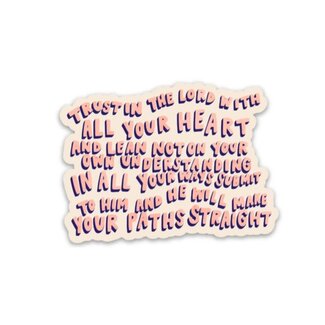 TRUST IN THE LORD WITH
ALL YOUR HEART
AND LEAN NOT ON YOUR
OWN UNDERSTANDING
IN ALL YOUR WAYS SUBMIT
TO HIM AND HE WILL MAKE
YOUR PATHS STRAIGHT